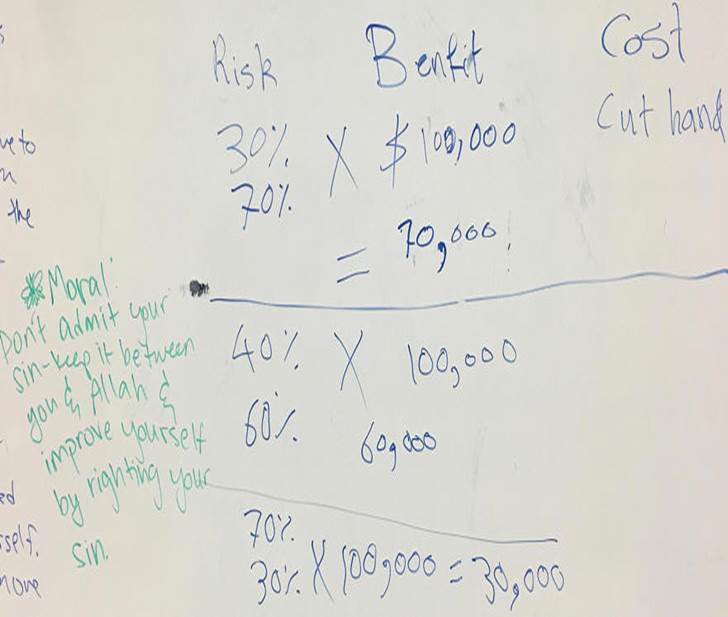 Risk Benfit Cost
30% X $100,000 Cut hand
70%
= 70,000
40% X 100,000
60% 60,000
70%
30% X 100,000 = 30,000
Moral:
Don't admit your
sin-keep it between
you & Allah &
improve yourself
by righting your
sin.
the
self.